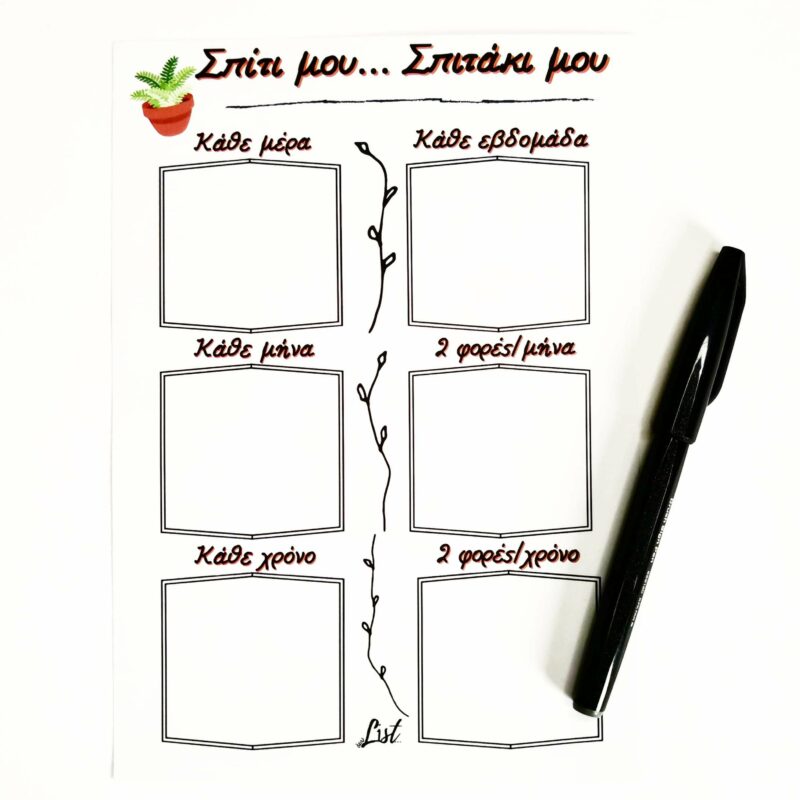 Σπίτι μου... Σπιτάκι μου
Κάθε μέρα
Κάθε εβδομάδα
Κάθε μήνα
2 φορές/μήνα
Κάθε χρόνο
2 φορές/χρόνο
List